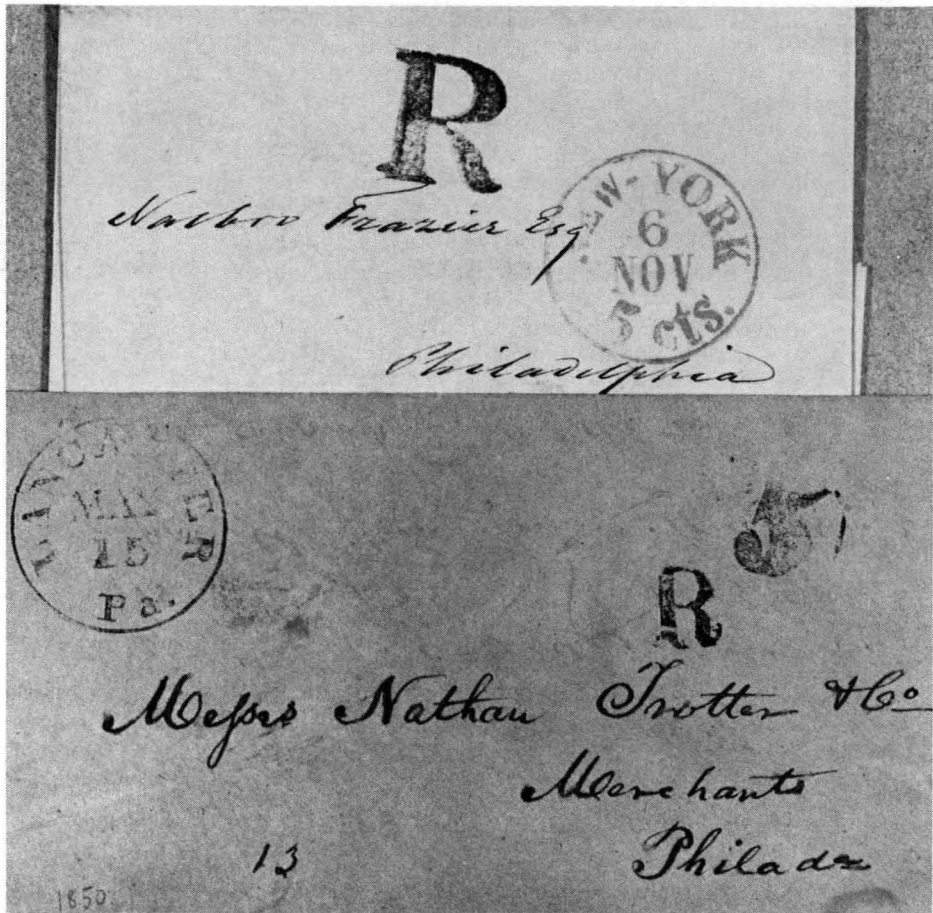 R
Nalbro Frazier Esq
NEW-YORK
6
NOV
5 cts.
Philadelphia
LANCASTER
MAY
15
Pa.
5
R
Messrs Nathan Trotter & Co
Merchants
Philada
13
1850